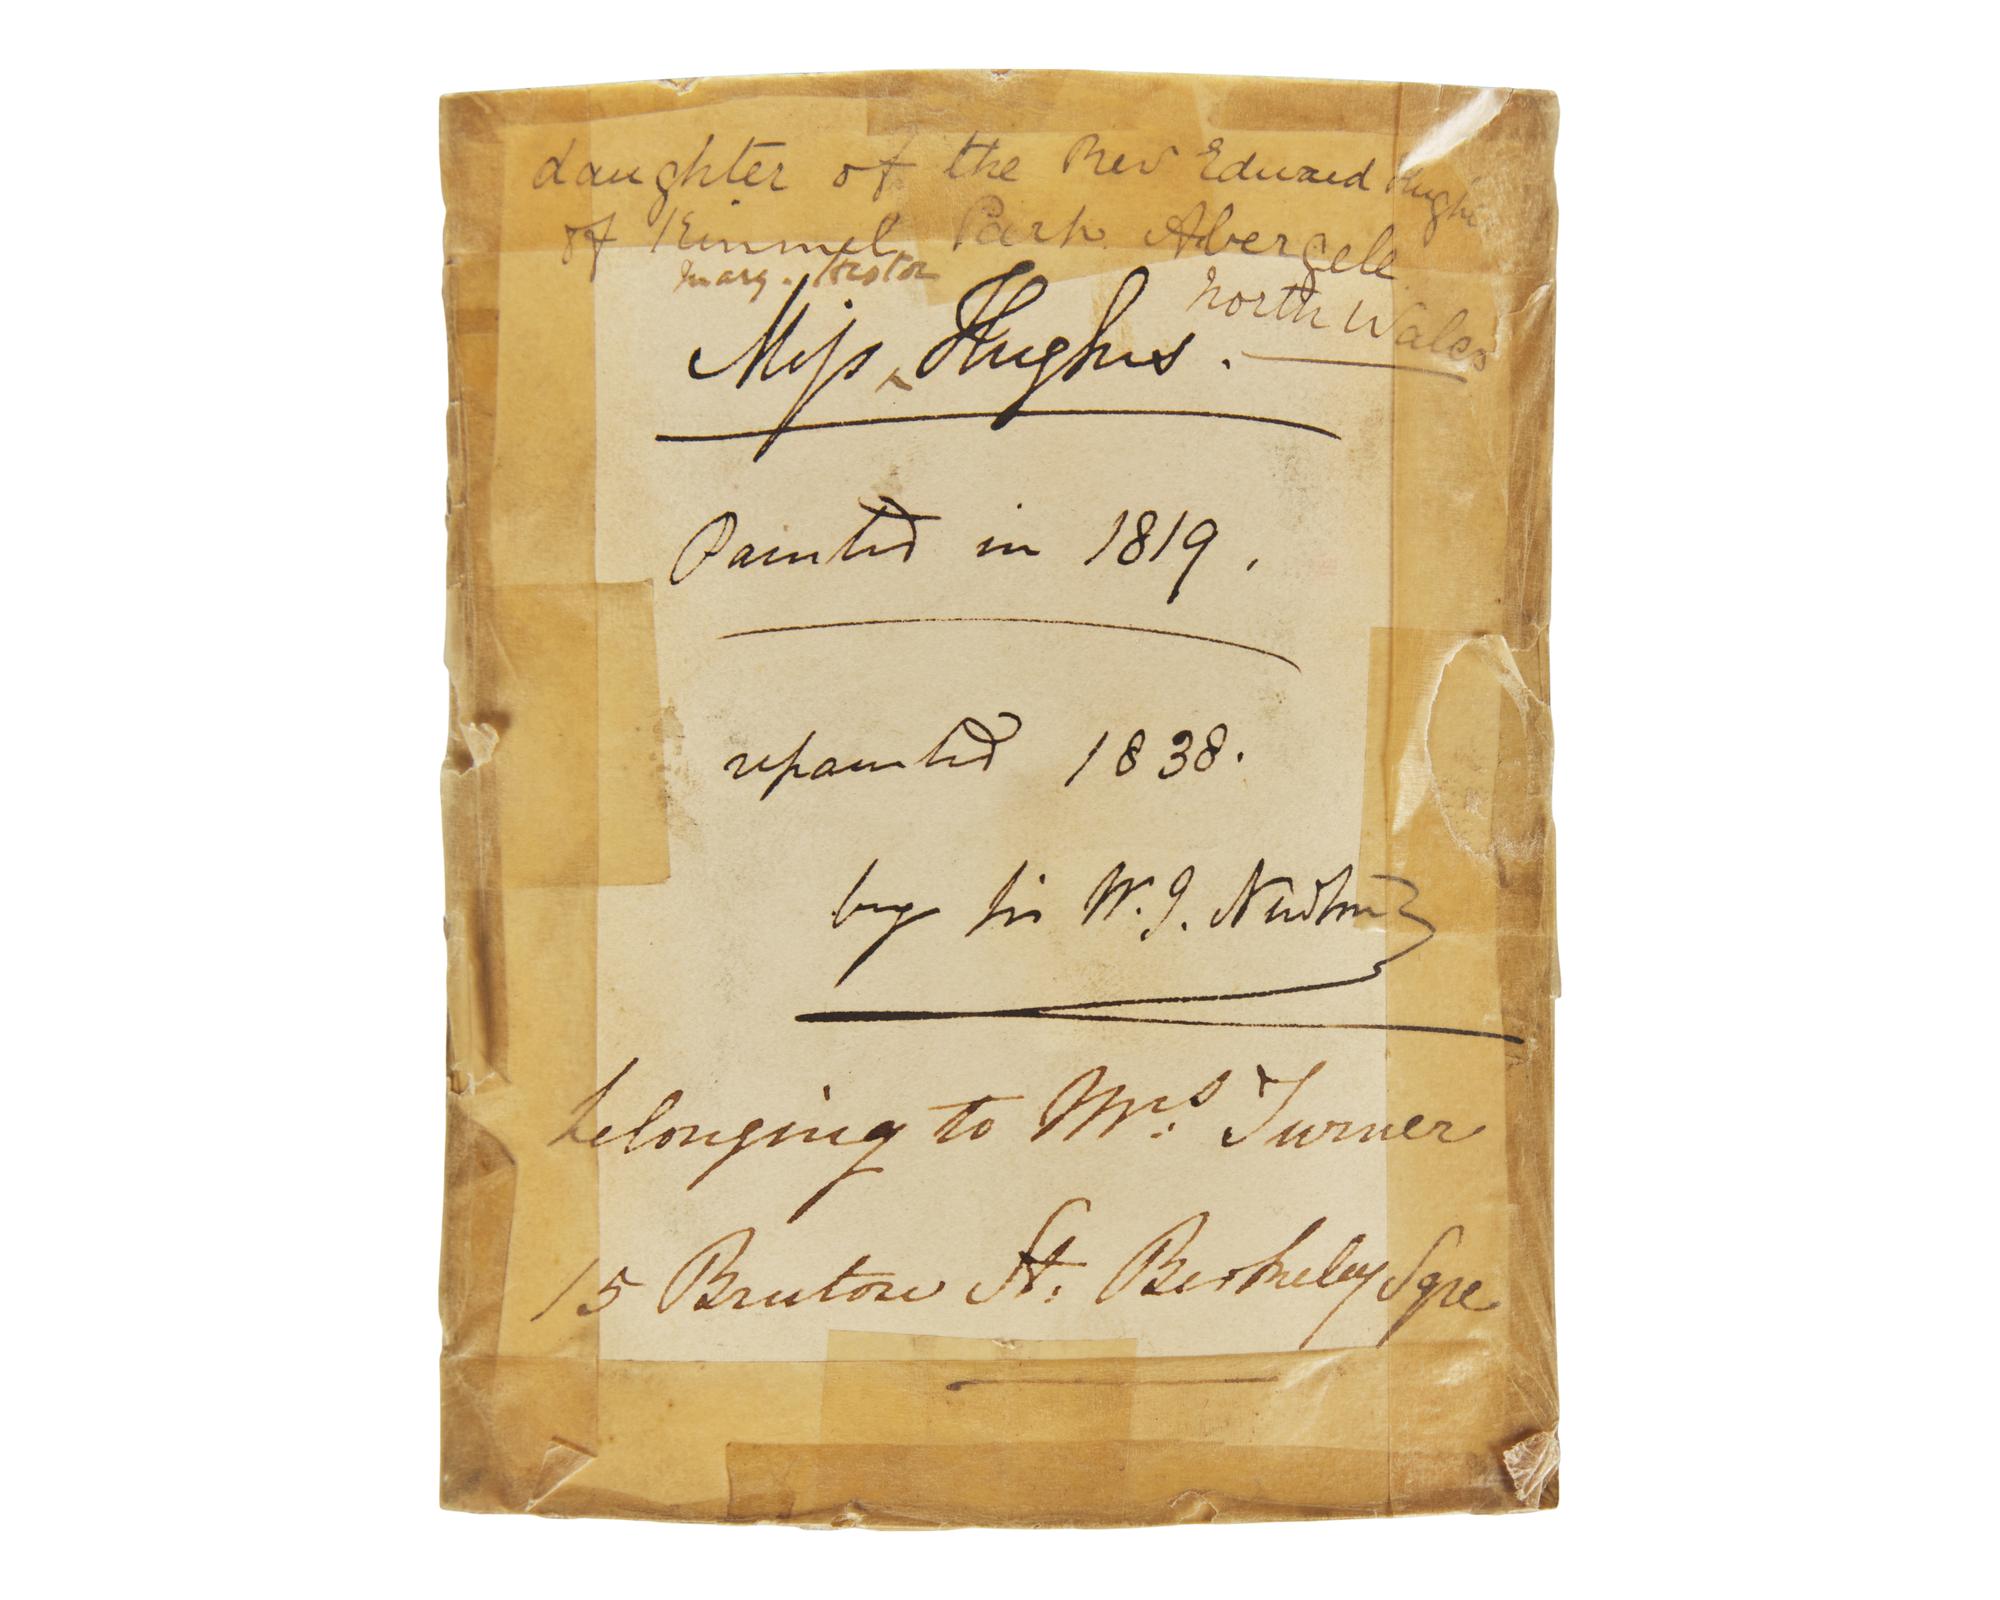 daughter of the Rev Edward Hughes
of Kinmel Park Abergele
North Wales
Mary. Hestor
Miss ‸ Hughes.
Painted in 1819.
repainted 1838.
by Sir W. J. Newton
belonging to Mrs. Turner
15 Bruton St. Berkeley Sqre